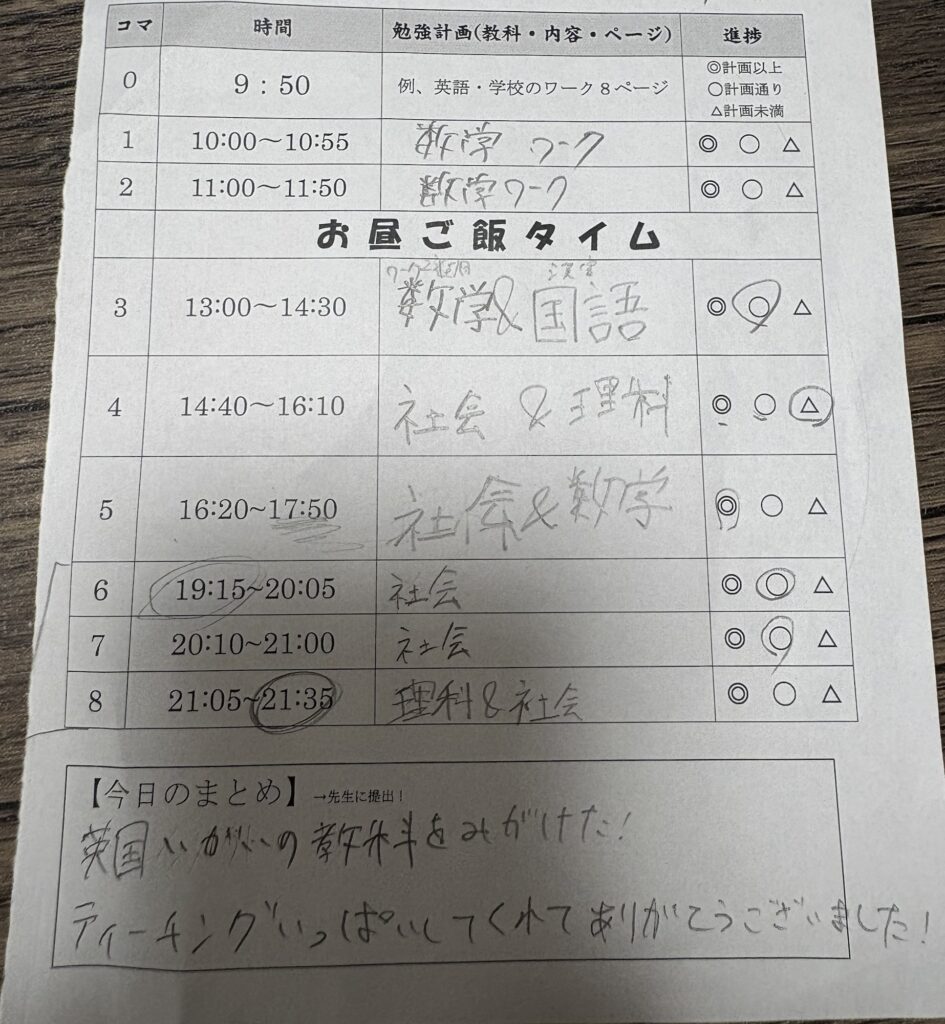 コマ 時間 勉強計画(教科・内容・ページ) 進捗
0 9：50 例、英語・学校のワーク８ページ ◎計画以上
○計画通り
△計画未満
1 10:00～10:55 数学 ワーク ◎ ○ △
2 11:00～11:50 数学ワーク ◎ ○ △
お昼ご飯タイム
ワーク2周目 漢字
3 13:00～14:30 数学&国語 ◎ ○ △
4 14:40～16:10 社会 & 理科 ◎ ○ △
5 16:20~17:50 社会&数学 ◎ ○ △
6 19:15~20:05 社会 ◎ ○ △
7 20:10~21:00 社会 ◎ ○ △
8 21:05~21:35 理科&社会 ◎ ○ △
【今日のまとめ】→先生に提出！
英国いがいの教科をみがけた!
ティーチングいっぱいしてくれてありがとうございました!